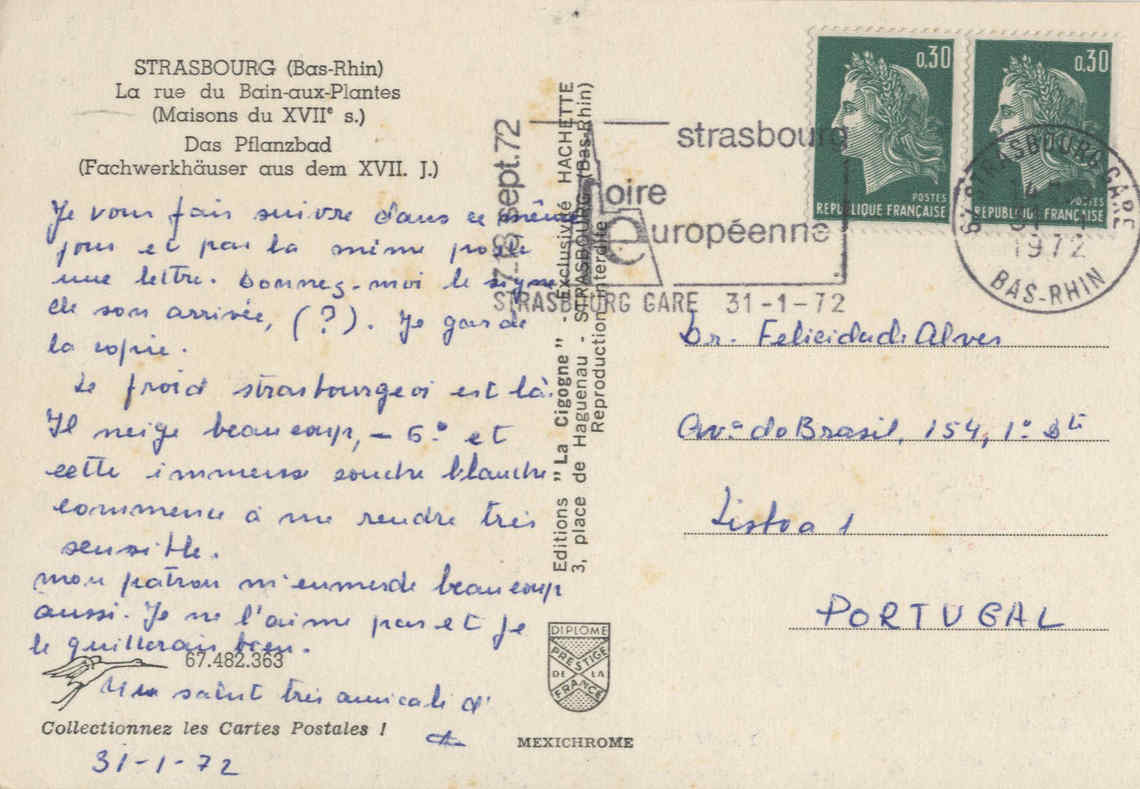 STRASBOURG (Bas-Rhin)
La rue du Bain-aux-Plantes
(Maisons du XVIIe s.)
Das Pflanzbad
(Fachwerkhäuser aus dem XVII. J.)
Je vous fais suivre dans ce même
jour et par la même poste
une lettre. Donnez-moi le signe
de son arrivée, (?). Je garde
la copie.
Le froid strasbourgeoi est là.
Il neige beaucoup, - 6° et
cette immense couche blanche
commence à me rendre très
sensible.
mon patron m'enmerde beaucoup
aussi. Je ne l'aime pas et je
le quitterais bien.
67.482.363
Un salut très amicale d'
Collectionnez les Cartes Postales !
31-1-72
Editions "La Cigogne" - Exclusivité HACHETTE
3, place de Haguenau - STRASBOURG (Bas-Rhin)
Reproduction interdite
DIPLOME
PRESTIGE
DE LA
FRANCE
MEXICHROME
sept.72
strasbourg
foire
européenne
STRASBOURG GARE 31-1-72
0,30
POSTES
REPUBLIQUE FRANÇAISE
0,30
POSTES
REPUBLIQUE FRANÇAISE
STRASBOURG GARE
1972
BAS-RHIN
Dr. Felicidade Alves
Av.a do Brasil, 154, 1.º Dto
Lisboa 1
PORTUGAL